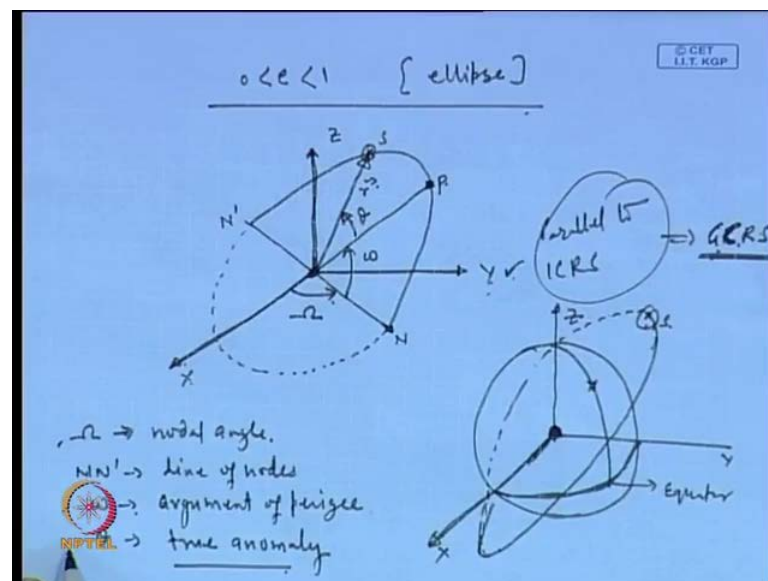 © CET
I.I.T. KGP
0 < e < 1 [ ellipse ]
Z
S
r
N'
P
θ
ω
Y
Parallel to
ICRS
⇒ GCRS
Ω
N
X
Z
S
Y
Equator
X
Ω → nodal angle.
NN' → line of nodes
ω → argument of perigee
→ true anomaly
NPTEL